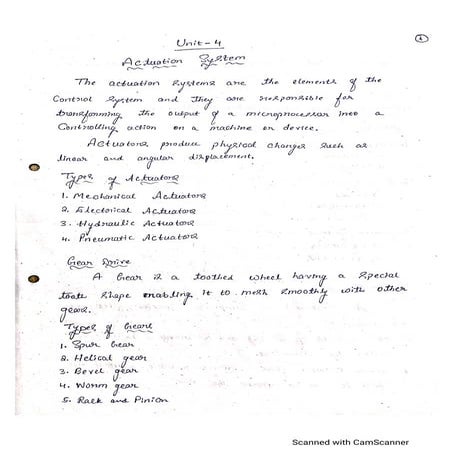 1
Unit - 4
Actuation System
The actuation systems are the elements of the
Control System and they are responsible for
transforming the output of a microprocessor into a
Controlling action on a machine or device.
Actuators produce physical changes such as
linear and angular displacement.
Types of Actuators
1. Mechanical Actuators
2. Electrical Actuators
3. Hydraulic Actuators
4. Pneumatic Actuators
Gear Drive
A Gear is a toothed wheel having a special
tooth shape enabling it to mesh smoothly with other
gears.
Types of Gears
1. Spur Gear
2. Helical gear
3. Bevel gear
4. Worm gear
5. Rack and Pinion
Scanned with CamScanner